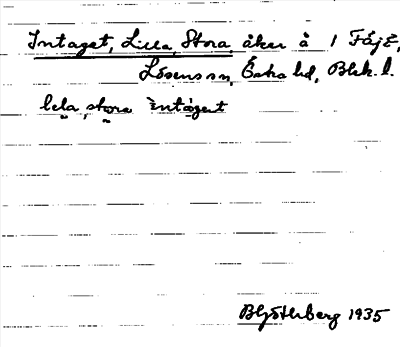 Intaget, Lilla, Stora, åker å 1 Fäjö,
Lösens sn, Östra hd, Blek. l.
lela, stora intaget
1935